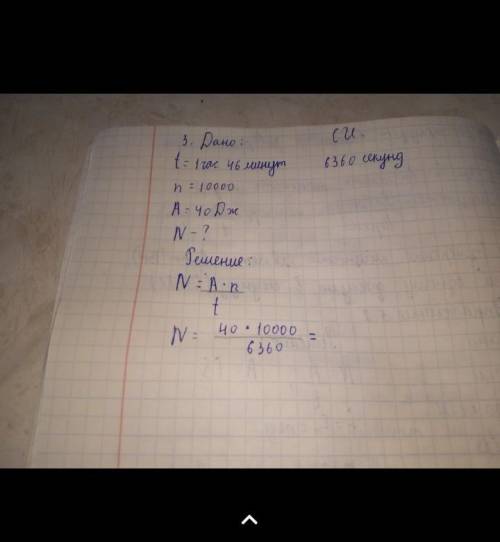 3. Дано: СИ.
t = 1 час 46 минут 6360 секунд
n = 10000
A = 40 Дж
N - ?
Решение:
N = A · n
t
N = 40 · 10000 =
6360